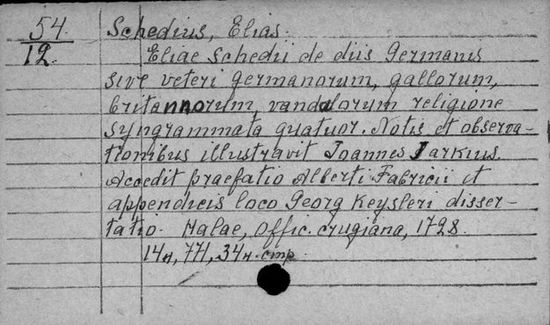 54. Schedius, Elias.
12. Eliae Schedii de diis Germanis
sive veteri germanorum, gallorum,
britannorum, vandalorum religione
syngrammata quatuor. Notis et observa-
tionibus illustravit Joannes Jarkius.
Accedit praefatio Alberti Fabricii et
appendicis loco Georg Keysleri disser-
tatio. Halae, Offic. crugiana, 1728.
14н, 771, 34н. стр.